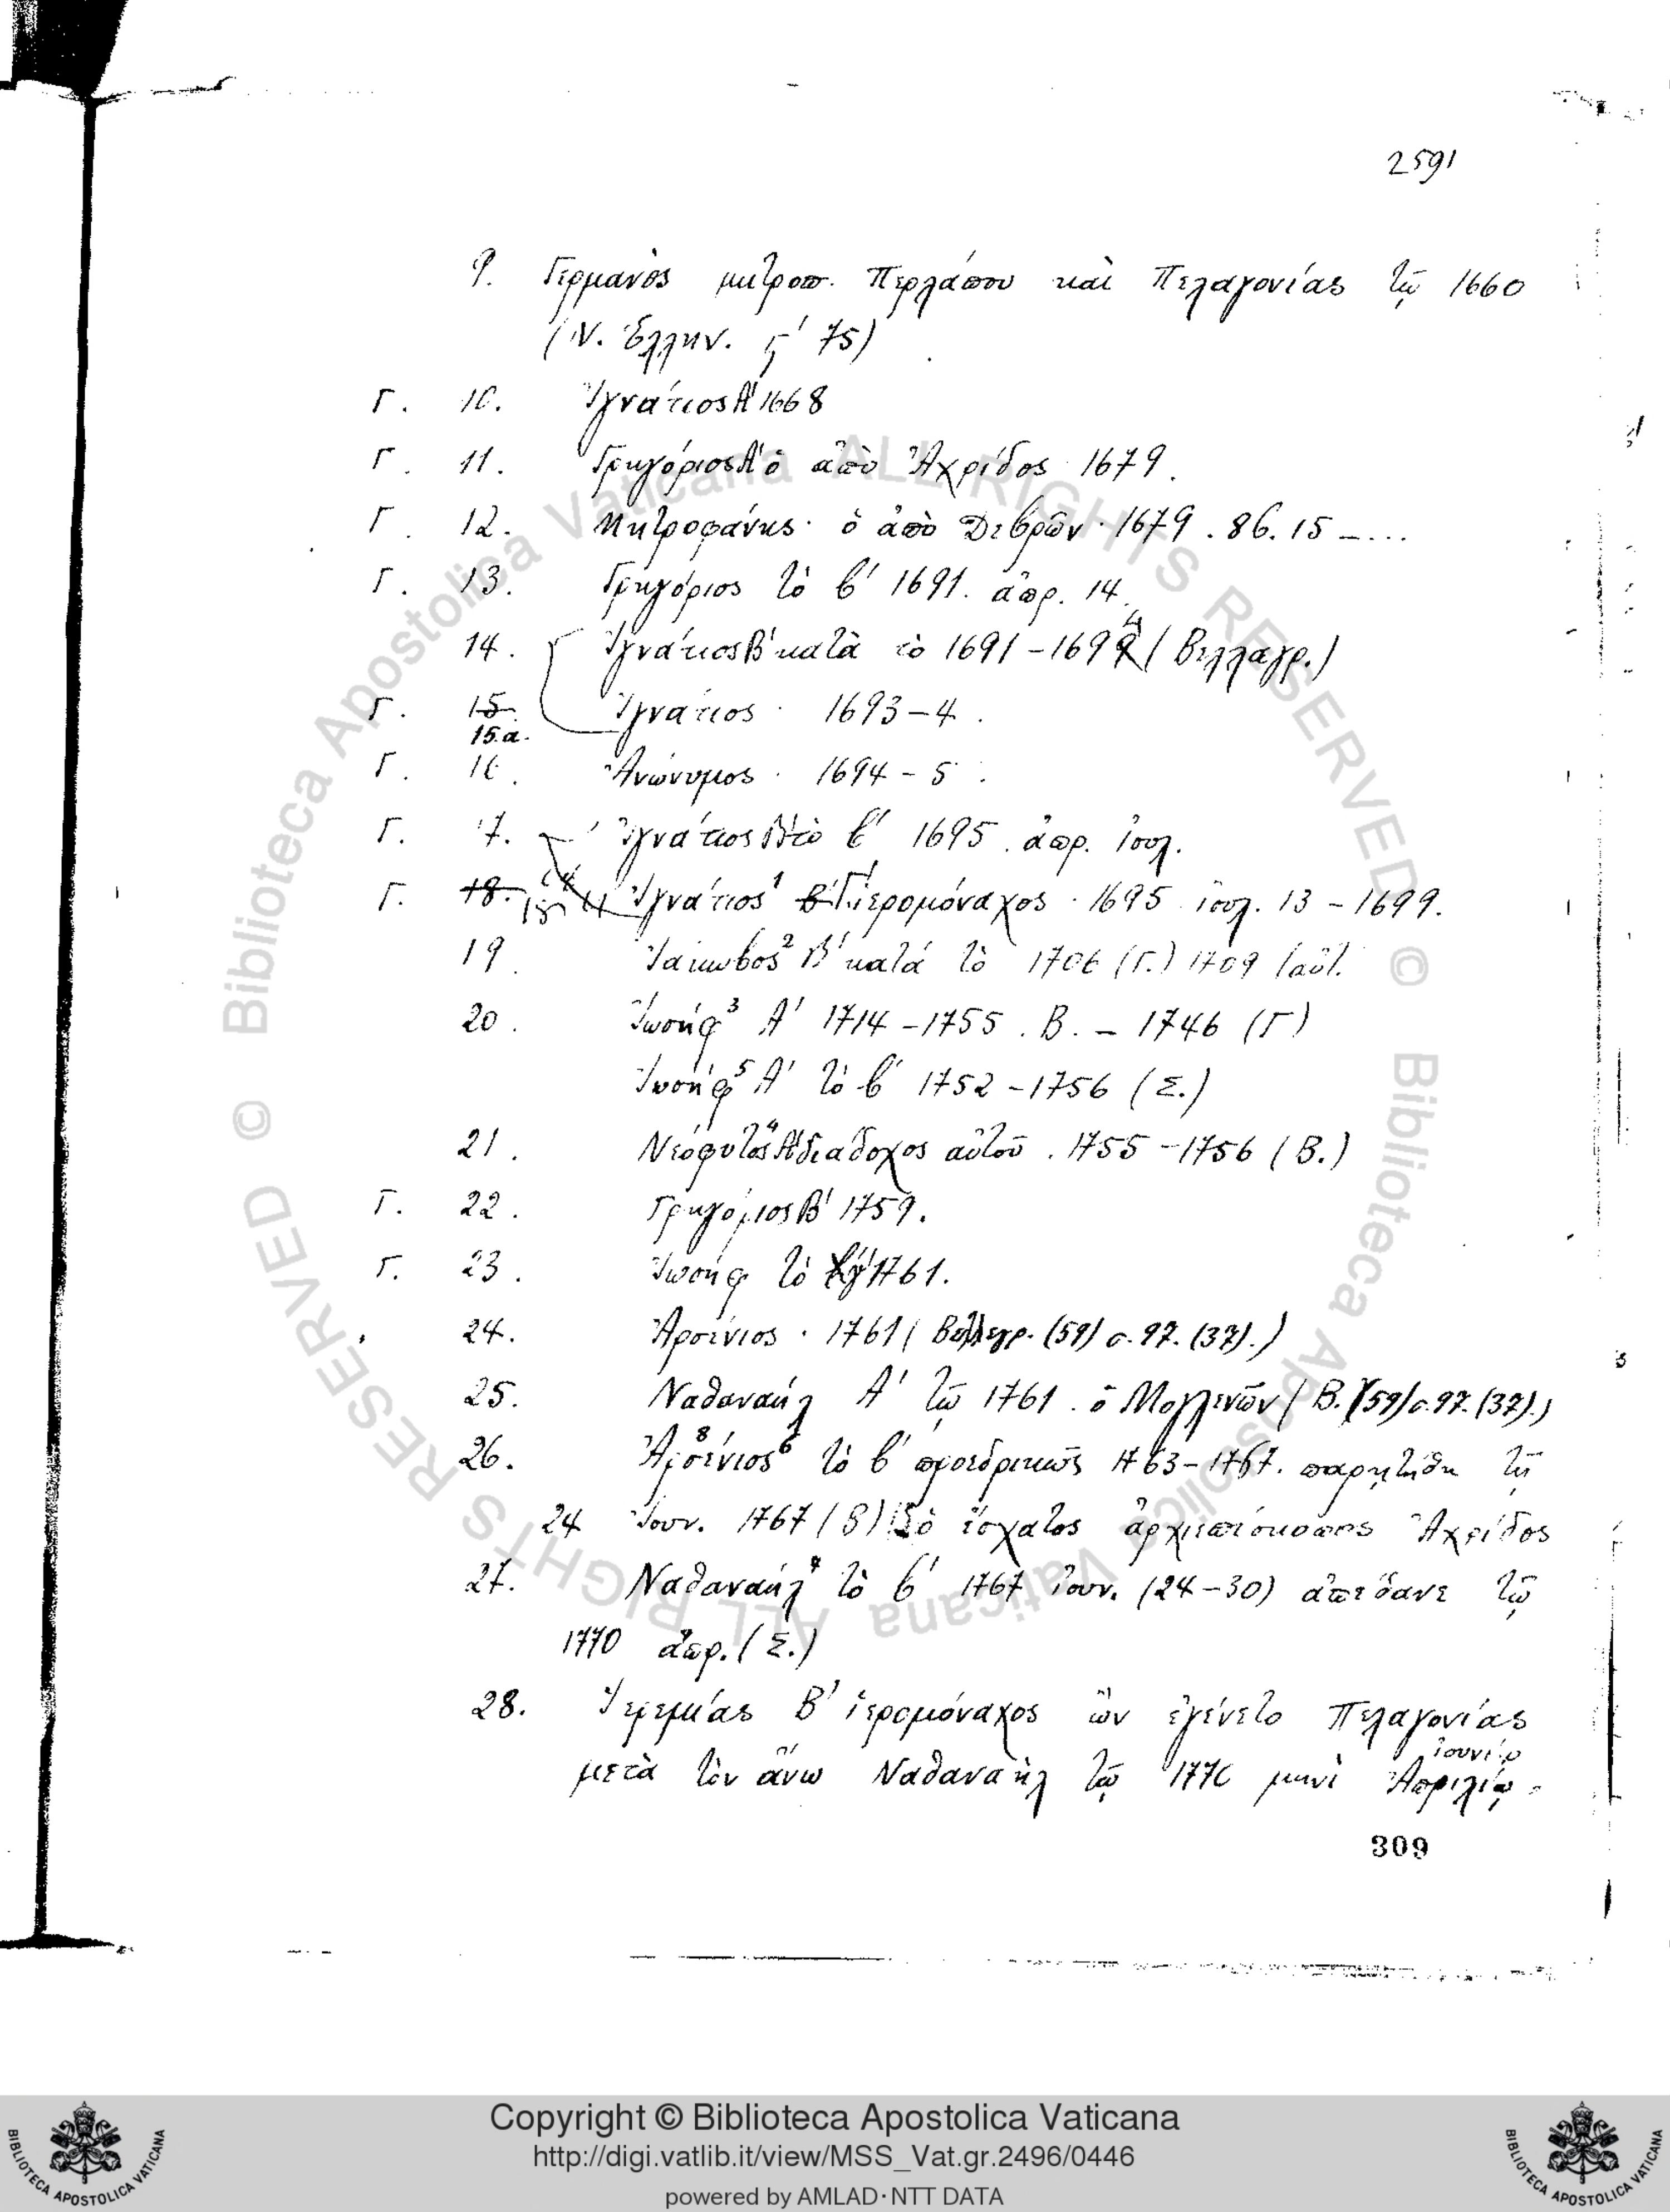 2591
9. Γερμανὸς μητροπ. Περλάπου καὶ Πελαγονίας τῷ 1660
(Ν. Ἑλλην. ϛ' 75)
Γ. 10. Ἰγνάτιος Α' 1668
Γ. 11. Γρηγόριος Α' ὁ ἀπὸ Ἀχρίδος 1679.
Γ. 12. Μητροφάνης · ὁ ἀπὸ Δεβρῶν · 1679. 86. 15 –...
Γ. 13. Γρηγόριος τὸ β' 1691. ἀπρ. 14.
14. Ἰγνάτιος Β' κατὰ τὸ 1691–1694 (Βελλαγρ.)
Γ. 15. Ἰγνάτιος · 1693–4.
15.α.
Γ. 16. Ἀνώνυμος · 1694–5.
Γ. 17. Ἰγνάτιος τὸ β' 1695. ἀπρ. ἰουλ.
Γ. 18. Ἰγνάτιος¹ Γ' ἱερομόναχος · 1695 ἰουλ. 13 – 1699.
19. Ἰάκωβος² Β' κατά τὸ 1706 (Γ.) 1709 (αὐτ.
20. Ἰωσήφ³ Α' 1714–1755. Β. – 1746 (Γ)
Ἰωσήφ⁵ Α' τὸ β' 1752–1756 (Σ.)
21. Νεόφυτος⁴ Α' διάδοχος αὐτοῦ. 1755–1756 (Β.)
Γ. 22. Γρηγόριος Β' 1759.
Γ. 23. Ἰωσήφ τὸ γ' 1761.
24. Ἀρσένιος · 1761 (Βελλεγρ. (59) σ. 97. (37).)
25. Ναθαναήλ Α' τῷ 1761. ὁ Μογλενῶν (Β. (59) σ. 97. (37).)
26. Ἀρσένιος⁶ τὸ β' προεδρικῶς 1763–1767. παρῃτήθη τῇ
24 Ἰουν. 1767 (Β) ὁ ἔσχατος ἀρχιεπίσκοπος Ἀχρίδος
27. Ναθαναήλ τὸ β' 1767 Ἰουν. (24–30) ἀπέθανε τῷ
1770 ἀπρ. (Σ.)
28. Ἱερεμίας Β' ἱερομόναχος ὢν ἐγένετο Πελαγονίας
ἰουνίῳ
μετὰ τὸν ἄνω Ναθαναὴλ τῷ 1770 μηνὶ Ἀπριλίῳ
309
© Biblioteca Apostolica Vaticana ALL RIGHTS RESERVED
© Biblioteca Apostolica Vaticana ALL RIGHTS RESERVED
BIBLIOTECA APOSTOLICA VATICANA
Copyright © Biblioteca Apostolica Vaticana
http://digi.vatlib.it/view/MSS_Vat.gr.2496/0446
powered by AMLAD·NTT DATA
BIBLIOTECA APOSTOLICA VATICANA